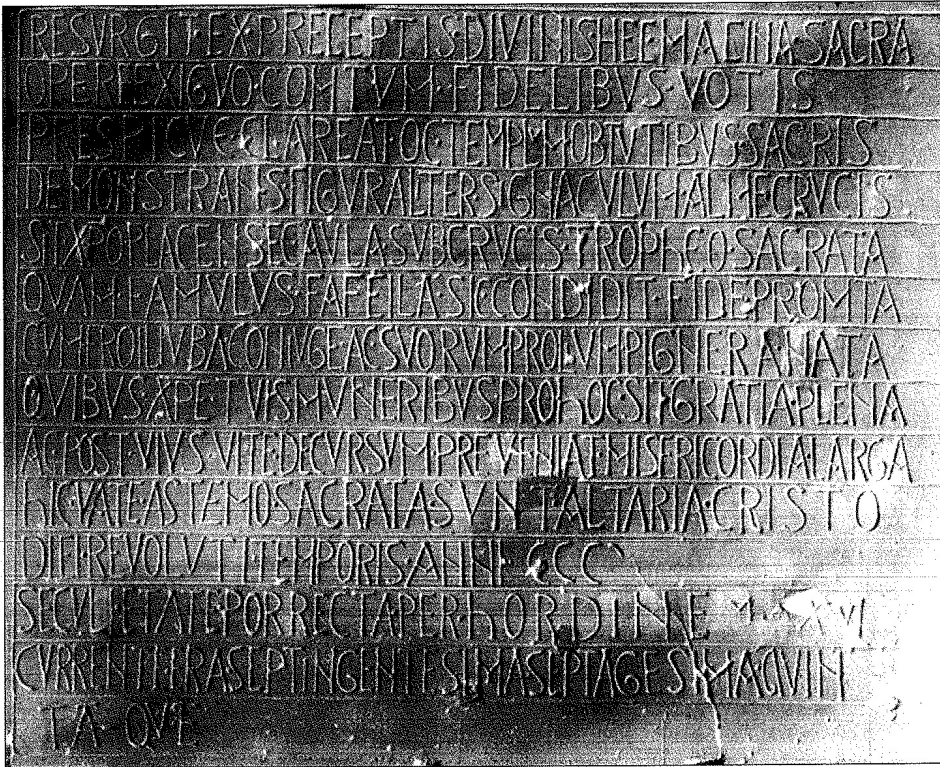 RESVRGIT·EX·PRECEPTIS·DIVINIS·HEC·MACINA SACRA
OPERE EXIGVO·COMTVM·FIDELIBVS·VOTIS
PRESPICVE·CLAREAT·OC TEMPLM OBTVTIBVS SACRIS
DEMONSTRANS FIGVRALITER SIGNACVLVM ALME CRVCIS
SIT XPO PLACENS EC AVLA SVB CRVCIS TROPHEO·SACRATA
QVAM·FAMVLVS·FAFEILA·SIC CONDIDIT·FIDE PROMTA
CVM FROILIVBA CONIVGE AC SVORVM PROLVM PIGNERA NATA
QVIBVS·XPE·TVIS MVNERIBVS PRO HOC SIT GRATIA PLENA
AC POST VIVS VITE DECVRSVM PREVENIAT MISERICORDIA LARGA
HIC VATE ASTEMO SACRATA SVNT ALTARIA·CRISTO
DIEI REVOLVTI TEMPORIS ANNI CCC
SECVLI ETATE PORRECTA PER HORDINE SEXTA
CVRRENTE ERA SEPTINGENTESIMA SEPTAGESIMA QVIN
TA·QVE